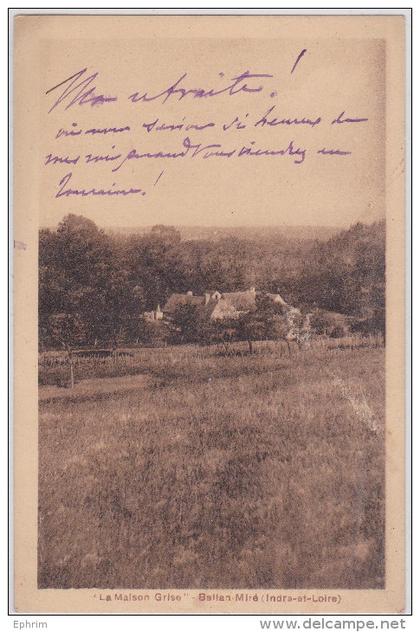 Ma retraite !
où nous serions si heureux de
vous voir quand vous viendrez en
Touraine !
"La Maison Grise" - Ballan-Miré (Indre-et-Loire)
Ephrim
delcampe.net